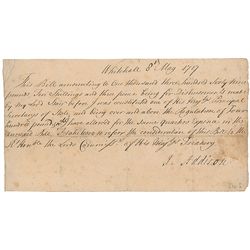 Whitehall 8th May 1717
This Bill amounting to One thousand three hundred Sixty three
pounds Five Shillings and three pence being for Disbursements made
by My Lord Stair before I was constituted one of His Majtys Principal
Secretarys of State, and being over and above the Regulation of Four
hundred pounds allowed for the same Quarters Expence in the
Bill, I take leave to referr the consideration of this Bill to the
Rt Honble the Lords Commissrs of His Majtys Treasury
J. Addison